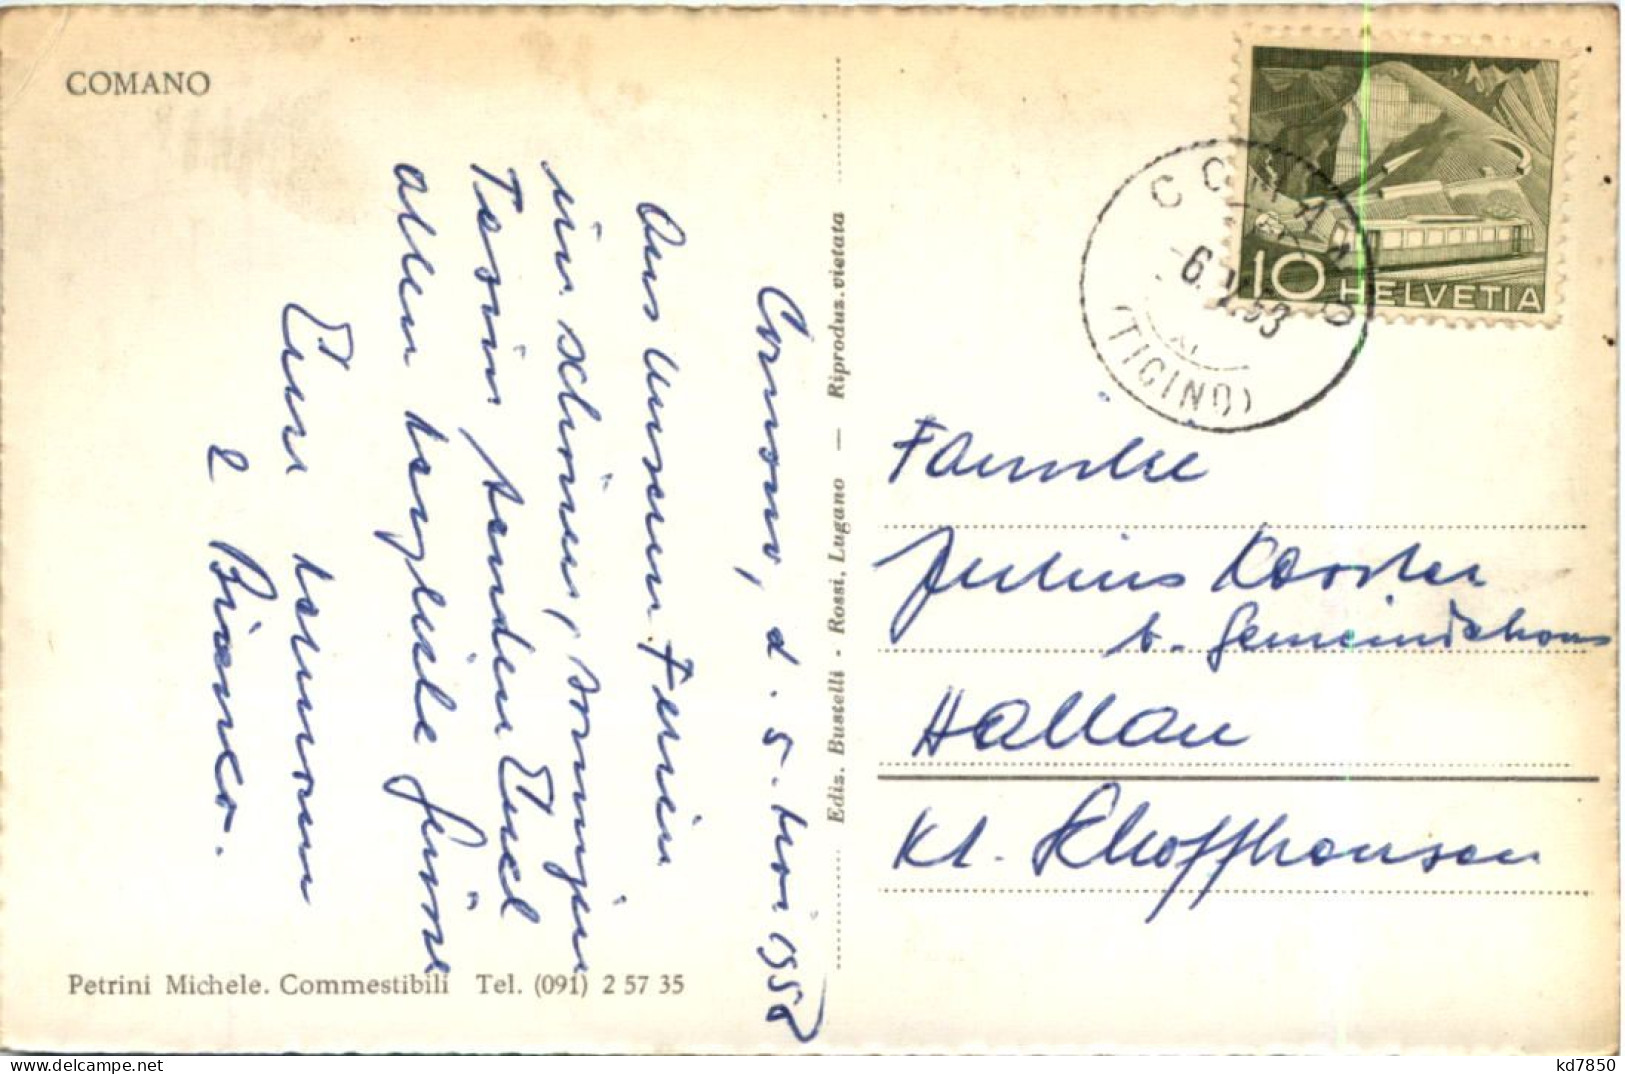 COMANO
Comano, d. 5. Mai 1958
Aus unseren Ferien
im schönen, sonnigen
Tessin senden Euch
allen herzliche Grüsse
Eure
& Bianca.
Petrini Michele. Commestibili Tel. (091) 2 57 35
Ediz. Bustelli - Rossi, Lugano — Riproduz. vietata
10 HELVETIA
COMANO
(TICINO)
Familie
Julius
b. Gemeindehaus
Hallau
Kt. Schaffhausen
kd7850